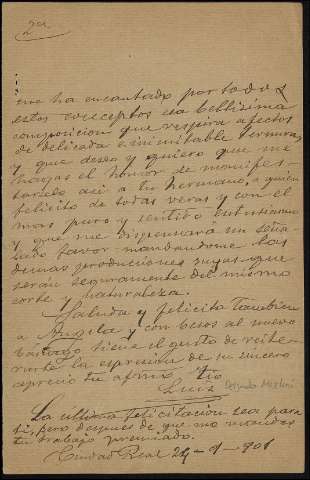 2a
me ha encantado por todos
estos conceptos esa bellisima
composicion que respira afectos
de delicada e inimitable ternura,
y que deseo y quiero que me
hagas el honor de manifes-
tarselo asi a tu hermano, a quien
felicito de todas veras y con el
mas puro y sentido entusiasmo
y que me dispensara un seña-
lado favor mandandome las
demas producciones suyas que
seran seguramente del mismo
corte y naturaleza.
Saluda y felicita tambien
a Angela y con besos al nuevo
vastago tiene el gusto de reite-
rarte la espresion de su sincero
aprecio tu afmo tio
Luis
La ultima felicitacion sea para
ti, pero despues de que me mandes
tu trabajo premiado.
Ciudad Real 901